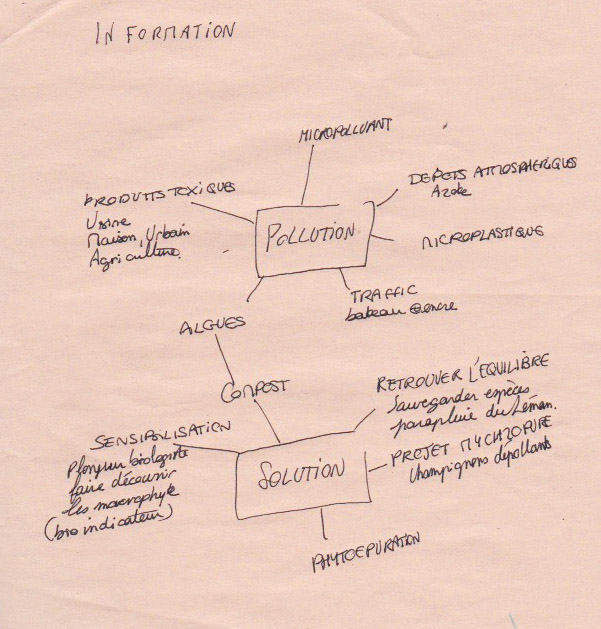 INFORMATION
MICROPOLLUANT
PRODUITS TOXIQUES
Usine
Maison, Urbain
Agriculture.
DEPÔTS ATMOSPHERIQUES
Azote
POLLUTION
MICROPLASTIQUE
TRAFFIC
bateau
ALGUES
COMPOST
RETROUVER L'EQUILIBRE
Sauvegarder espèces
parapluie du Léman.
SENSIBILISATION
Plongeur biologiste
faire découvrir
les macrophyte
(bio indicateur)
SOLUTION
PROJET MYCHZOPURE
Champignons dépolluants
PHYTOEPURATION